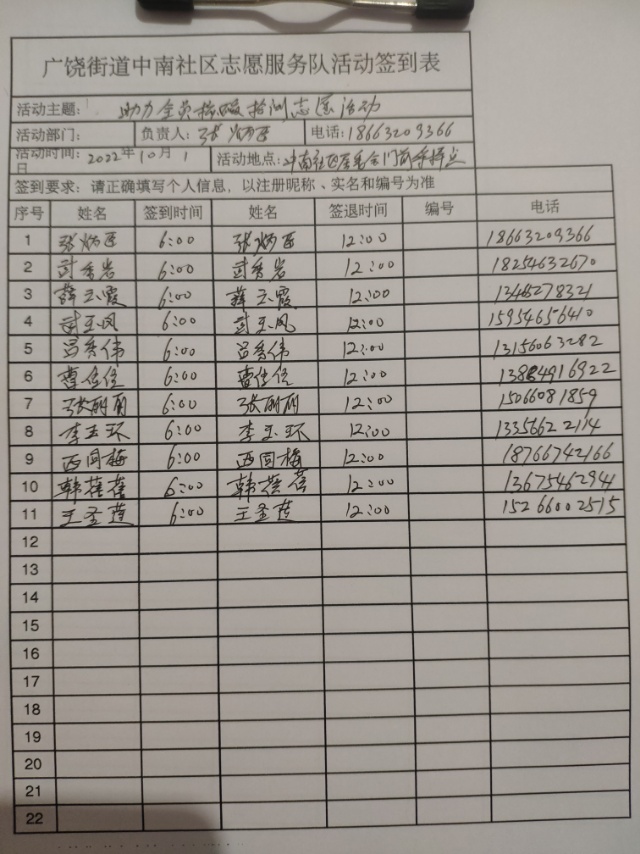 广饶街道中南社区志愿服务队活动签到表
活动主题: 助力全员核酸检测志愿活动
活动部门: 负责人: 张炳 电话: 18663209366
活动时间: 2022年10月1日 活动地点: 中南社区
签到要求: 请正确填写个人信息，以注册昵称、实名和编号为准
序号 姓名 签到时间 姓名 签退时间 编号 电话
1 张炳 6:00 张炳 12:00 18663209366
2 武秀岩 6:00 武秀岩 12:00 18254632670
3 薛玉霞 6:00 薛玉霞 12:00 13465278321
4 武玉凤 6:00 武玉凤 12:00 15954656410
5 吕秀伟 6:00 吕秀伟 12:00 13156063282
6 曹佳佳 6:00 曹佳佳 12:00 13884916922
7 张丽丽 6:00 张丽丽 12:00 15066081859
8 李玉环 6:00 李玉环 12:00 13356622114
9 西同梅 6:00 西同梅 12:00 18766742166
10 韩蓓蓓 6:00 韩蓓蓓 12:00 13675462941
11 王圣莲 6:00 王圣莲 12:00 15266002515
12
13
14
15
16
17
18
19
20
21
22